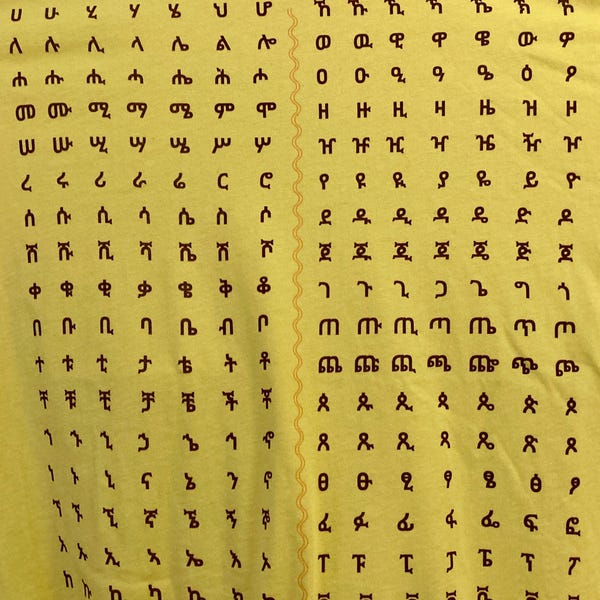 ሀ ሁ ሂ ሃ ሄ ህ ሆ
ለ ሉ ሊ ላ ሌ ል ሎ
ሐ ሑ ሒ ሓ ሔ ሕ ሖ
መ ሙ ሚ ማ ሜ ም ሞ
ሠ ሡ ሢ ሣ ሤ ሥ ሦ
ረ ሩ ሪ ራ ሬ ር ሮ
ሰ ሱ ሲ ሳ ሴ ስ ሶ
ሸ ሹ ሺ ሻ ሼ ሽ ሾ
ቀ ቁ ቂ ቃ ቄ ቅ ቆ
በ ቡ ቢ ባ ቤ ብ ቦ
ተ ቱ ቲ ታ ቴ ት ቶ
ቸ ቹ ቺ ቻ ቼ ች ቾ
ኀ ኁ ኂ ኃ ኄ ኅ ኆ
ነ ኑ ኒ ና ኔ ን ኖ
ኘ ኙ ኚ ኛ ኜ ኝ ኞ
አ ኡ ኢ ኣ ኤ እ ኦ
ኸ ኹ ኺ ኻ ኼ ኽ ኾ
ወ ዉ ዊ ዋ ዌ ው ዎ
ዐ ዑ ዒ ዓ ዔ ዕ ዖ
ዘ ዙ ዚ ዛ ዜ ዝ ዞ
ዠ ዡ ዢ ዣ ዤ ዥ ዦ
የ ዩ ዪ ያ ዬ ይ ዮ
ደ ዱ ዲ ዳ ዴ ድ ዶ
ጀ ጁ ጂ ጃ ጄ ጅ ጆ
ገ ጉ ጊ ጋ ጌ ግ ጎ
ጠ ጡ ጢ ጣ ጤ ጥ ጦ
ጨ ጩ ጪ ጫ ጬ ጭ ጮ
ጰ ጱ ጲ ጳ ጴ ጵ ጶ
ጸ ጹ ጺ ጻ ጼ ጽ ጾ
ፀ ፁ ፂ ፃ ፄ ፅ ፆ
ፈ ፉ ፊ ፋ ፌ ፍ ፎ
ፐ ፑ ፒ ፓ ፔ ፕ ፖ